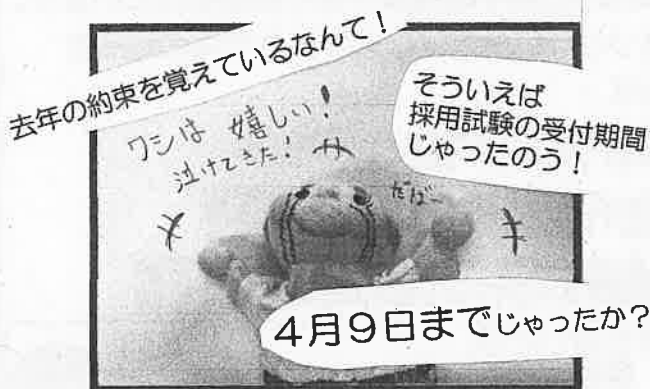 去年の約束を覚えているなんて！
ワシは 嬉しい！
泣けてきた！
だばー
そういえば
採用試験の受付期間
じゃったのう！
4月9日までじゃったか？